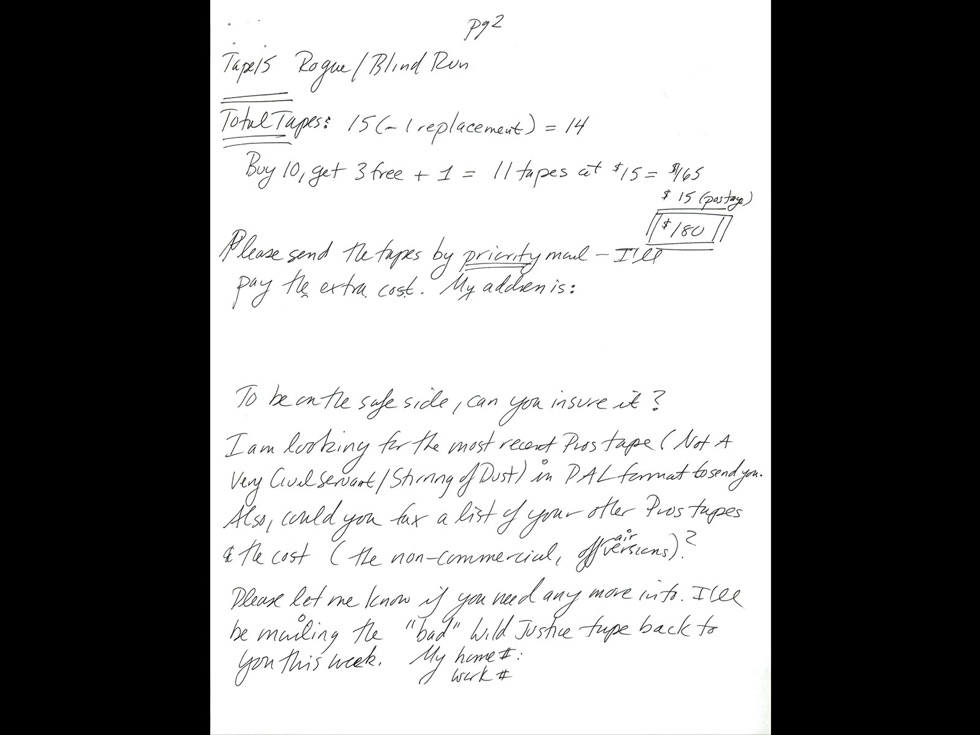 pg 2
Tape 15 Rogue / Blind Run
Total Tapes: 15 (-1 replacement) = 14
Buy 10, get 3 free + 1 = 11 tapes at $15 = $165
$15 (postage)
$180
Please send the tapes by priority mail - I'll
pay the extra cost. My address is:
To be on the safe side, can you insure it?
I am looking for the most recent Pros tape (Not A
Very Civil Servant / Stirring of Dust) in PAL format to send you.
Also, could you fax a list of your other Pros tapes
& the cost (the non-commercial, off air versions)?
Please let me know if you need any more info. I'll
be mailing the "bad" Wild Justice tape back to
you this week. My home #:
work #